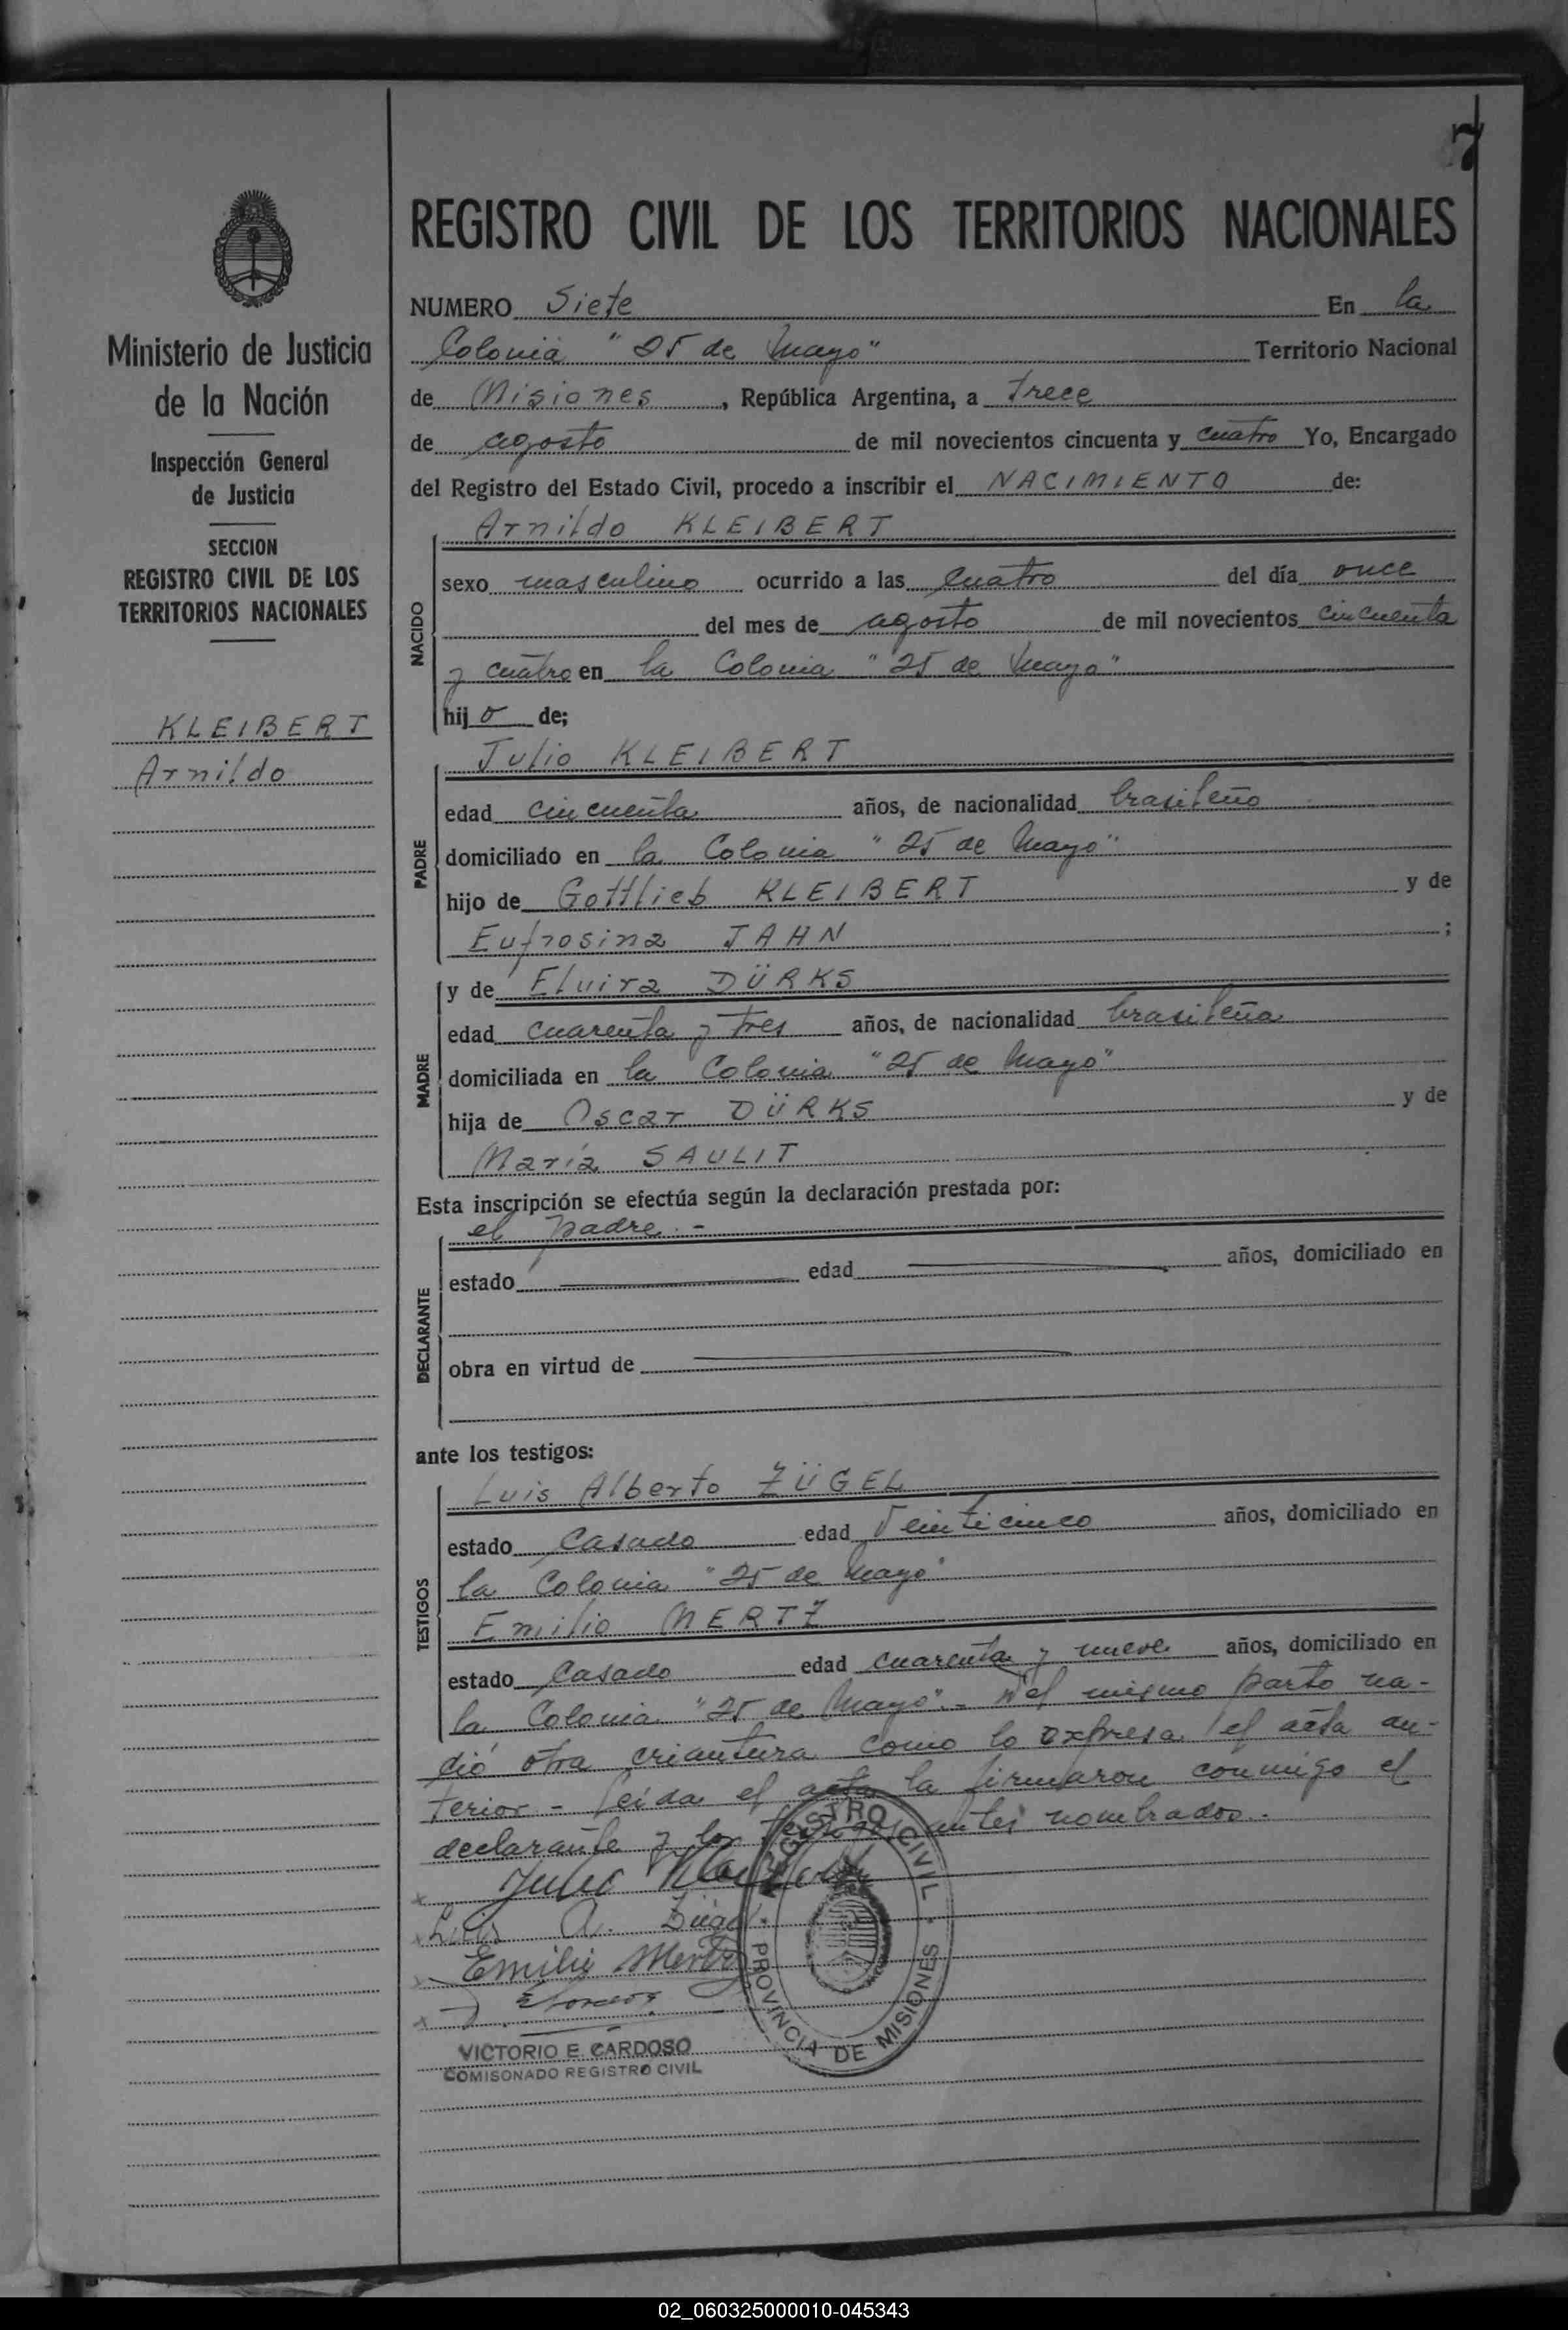 7
REGISTRO CIVIL DE LOS TERRITORIOS NACIONALES
Ministerio de Justicia
de la Nación
Inspección General
de Justicia
SECCION
REGISTRO CIVIL DE LOS
TERRITORIOS NACIONALES
KLEIBERT
Arnildo
NUMERO Siete En la
Colonia "25 de Mayo" Territorio Nacional
de Misiones, República Argentina, a trece
de agosto de mil novecientos cincuenta y cuatro Yo, Encargado
del Registro del Estado Civil, procedo a inscribir el NACIMIENTO de:
Arnildo KLEIBERT
NACIDO
sexo masculino ocurrido a las cuatro del día once
del mes de agosto de mil novecientos cincuenta
y cuatro en la Colonia "25 de Mayo"
hijo de;
Julio KLEIBERT
PADRE
edad cincuenta años, de nacionalidad brasileño
domiciliado en la Colonia "25 de Mayo"
hijo de Gottlieb KLEIBERT y de
Eufrosina JAHN ;
y de Elvira DÜRKS
MADRE
edad cuarenta y tres años, de nacionalidad brasileña
domiciliada en la Colonia "25 de Mayo"
hija de Oscar DÜRKS y de
María SAULIT
Esta inscripción se efectúa según la declaración prestada por:
el padre.-
DECLARANTE
estado edad años, domiciliado en
obra en virtud de
ante los testigos:
Luis Alberto ZÜGEL
TESTIGOS
estado Casado edad Veinticinco años, domiciliado en
la Colonia "25 de Mayo"
Emilio MERTZ
estado Casado edad cuarenta y nueve años, domiciliado en
la Colonia "25 de Mayo".- el mismo parto na-
ció otra criautura como lo expresa el acta an-
terior - leída el acta la firmaron conmigo el
declarante y los testigos antes nombrados.-
Julio
Luis A. Zügel
Emilio Mertz
REGISTRO CIVIL
PROVINCIA DE MISIONES
VICTORIO E. CARDOSO
COMISONADO REGISTRO CIVIL
02_060325000010-045343